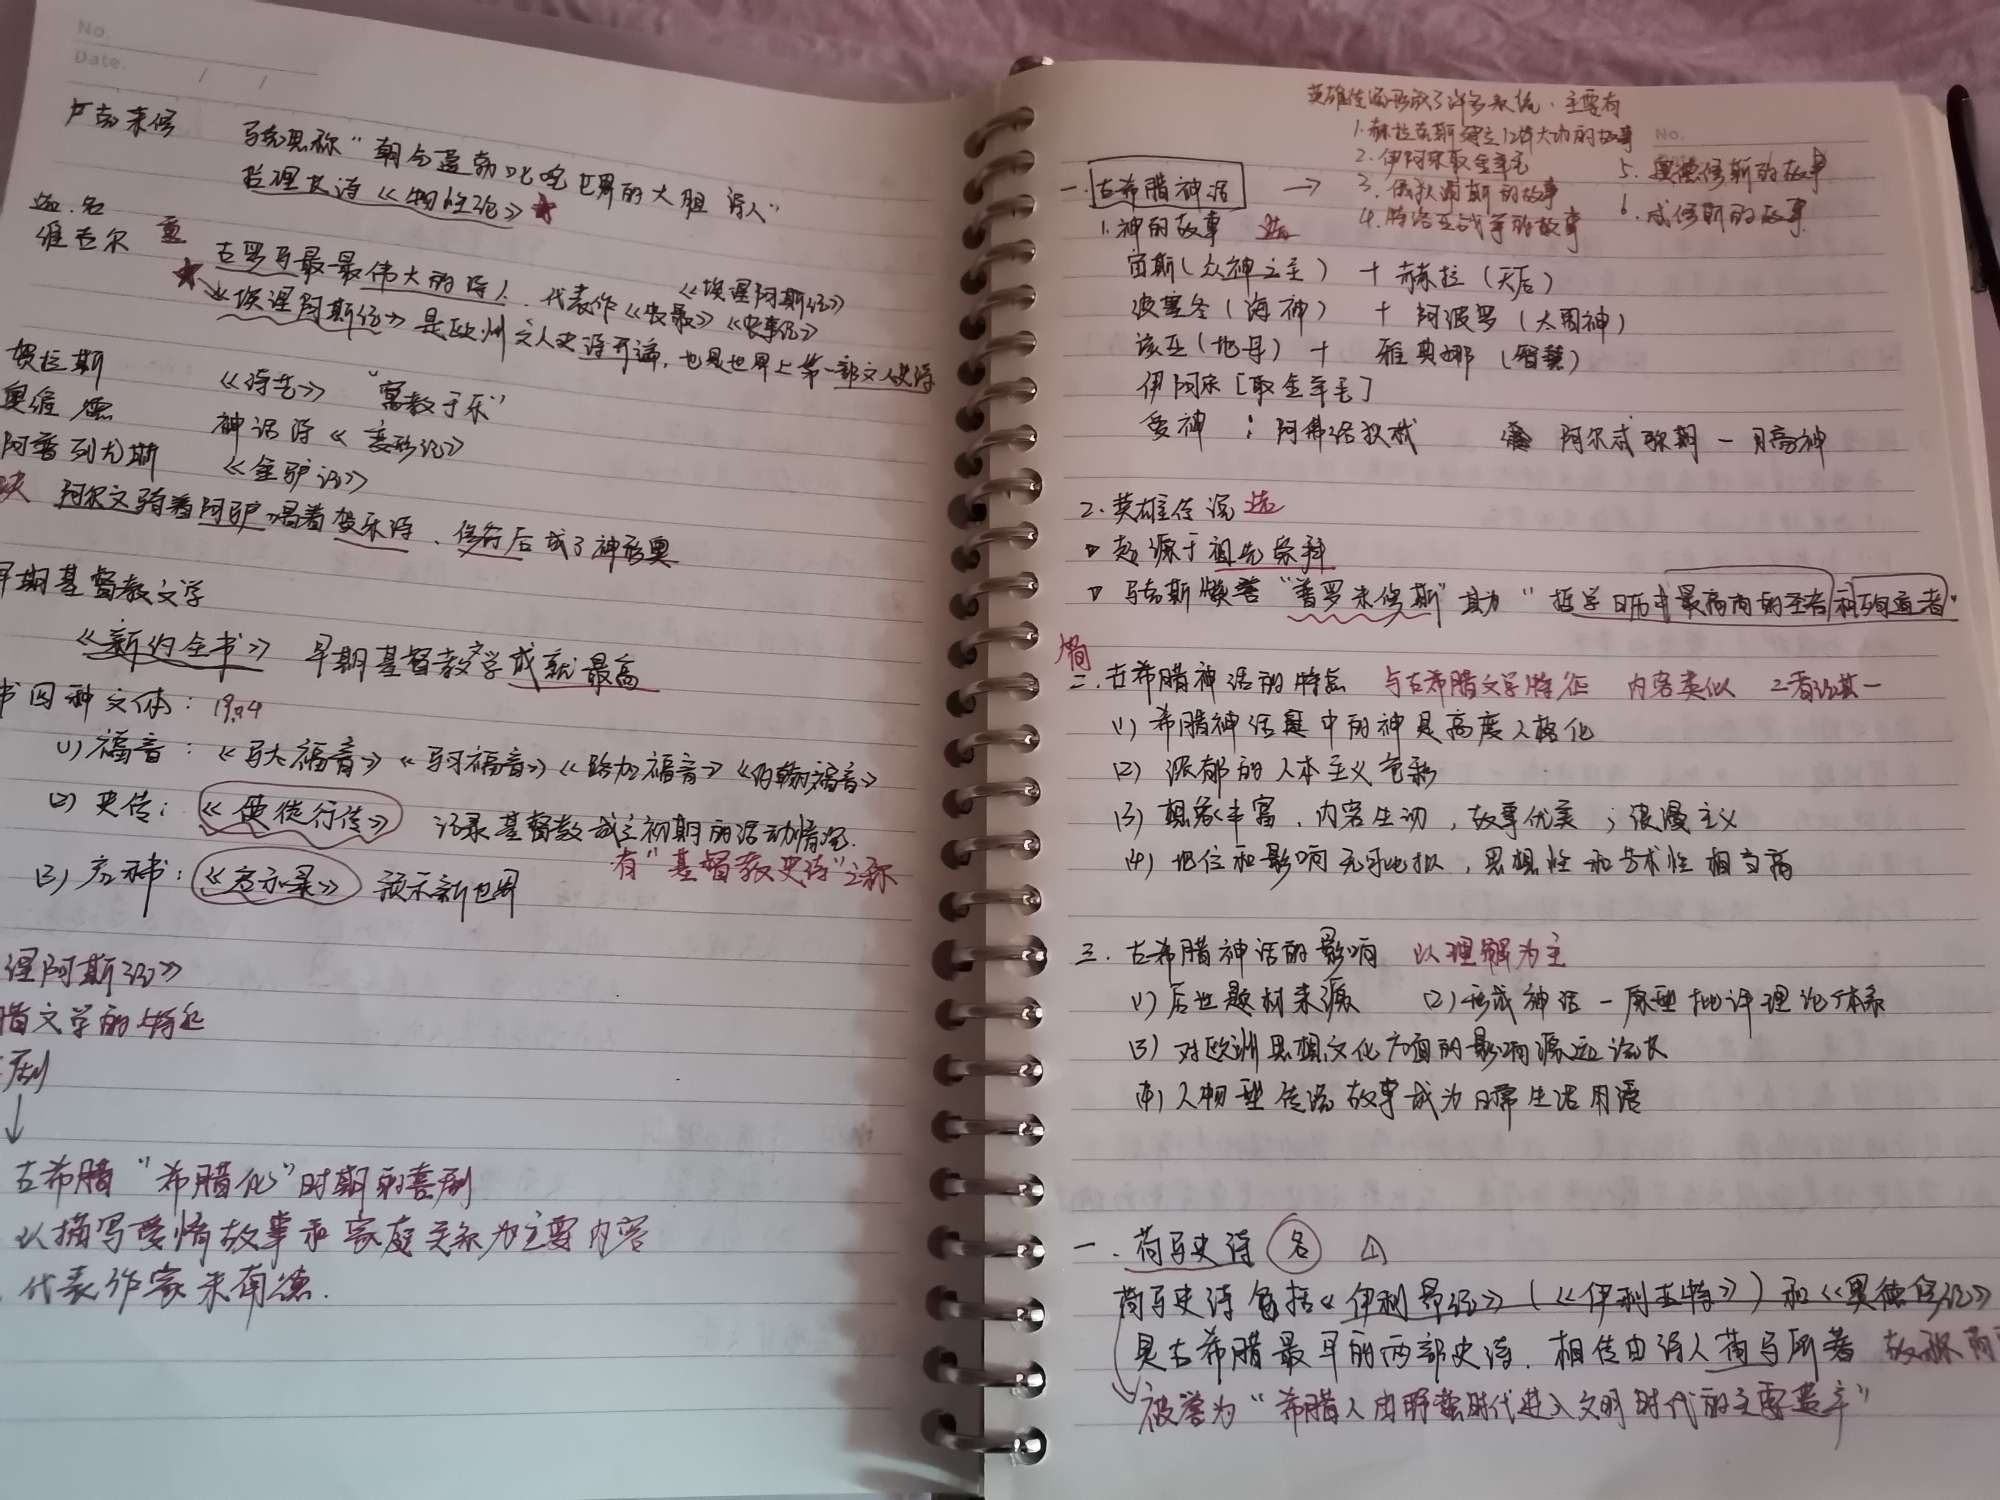 No.
Date.
卢克来修 马克思称"朝气蓬勃叱咤世界的大胆诗人"
哲理长诗《物性论》★
选.名
维吉尔 重 古罗马最最伟大的诗人. 代表作《农景》《农事诗》《埃涅阿斯纪》
★《埃涅阿斯纪》是欧州文人史诗开端, 也是世界上第一部文人史诗
贺拉斯 《诗艺》 "寓教于乐"
奥维德 神话诗《变形记》
阿普列尤斯 《金驴记》
阿尔文骑着阿驴唱着贺乐诗、修行后成了神形奥
早期基督教文学
《新约全书》 早期基督教文学成就最高
书四种文体:
(1) 福音: 《马太福音》《马可福音》《路加福音》《约翰福音》
(2) 史传: 《使徒行传》 记录基督教成立初期的活动情况.
有"基督教史诗"之称
(3) 启示书: 《启示录》 预示新世界
涅阿斯纪》
腊文学的特征
喜剧
↓
古希腊"希腊化"时期的喜剧
以描写爱情故事和家庭关系为主要内容
代表作家米南德.
英雄传说形成了许多系统. 主要有
1. 赫拉克斯建立12件大功的故事
No.
2. 伊阿宋取金羊毛
5. 奥德修斯的故事
一. 古希腊神话 → 3. 俄狄浦斯的故事
1. 神的故事 选 4. 特洛亚战争的故事 6. 忒修斯的故事
宙斯(众神之主) + 赫拉(天后)
波塞冬(海神) + 阿波罗(太阳神)
该亚(地母) + 雅典娜(智慧)
伊阿宋[取金羊毛]
爱神: 阿弗洛狄忒 阿尔忒弥斯—月亮神
2. 英雄传说 选
起源于祖先崇拜
马克斯赞誉"普罗米修斯"其为"哲学日历中最高尚的圣者和殉道者"
简
二. 古希腊神话的特点 与古希腊文学特征 内容类似 2者论其一
(1) 希腊神话中的神是高度人格化
(2) 浓郁的人本主义色彩
(3) 想象丰富, 内容生动, 故事优美; 浪漫主义
(4) 地位和影响无可比拟, 思想性和艺术性相交高
三. 古希腊神话的影响 以理解为主
(1) 后世题材来源 (2) 形成神话—原型批评理论体系
(3) 对欧洲思想文化方面的影响源远流长
(4) 人物型传说故事成为日常生活用语
一. 荷马史诗 名
荷马史诗包括《伊利昂纪》(《伊利亚特》)和《奥德修纪》
是古希腊最早的两部史诗. 相传由诗人荷马所著 故称荷
被誉为"希腊人由野蛮时代进入文明时代的主要遗产"